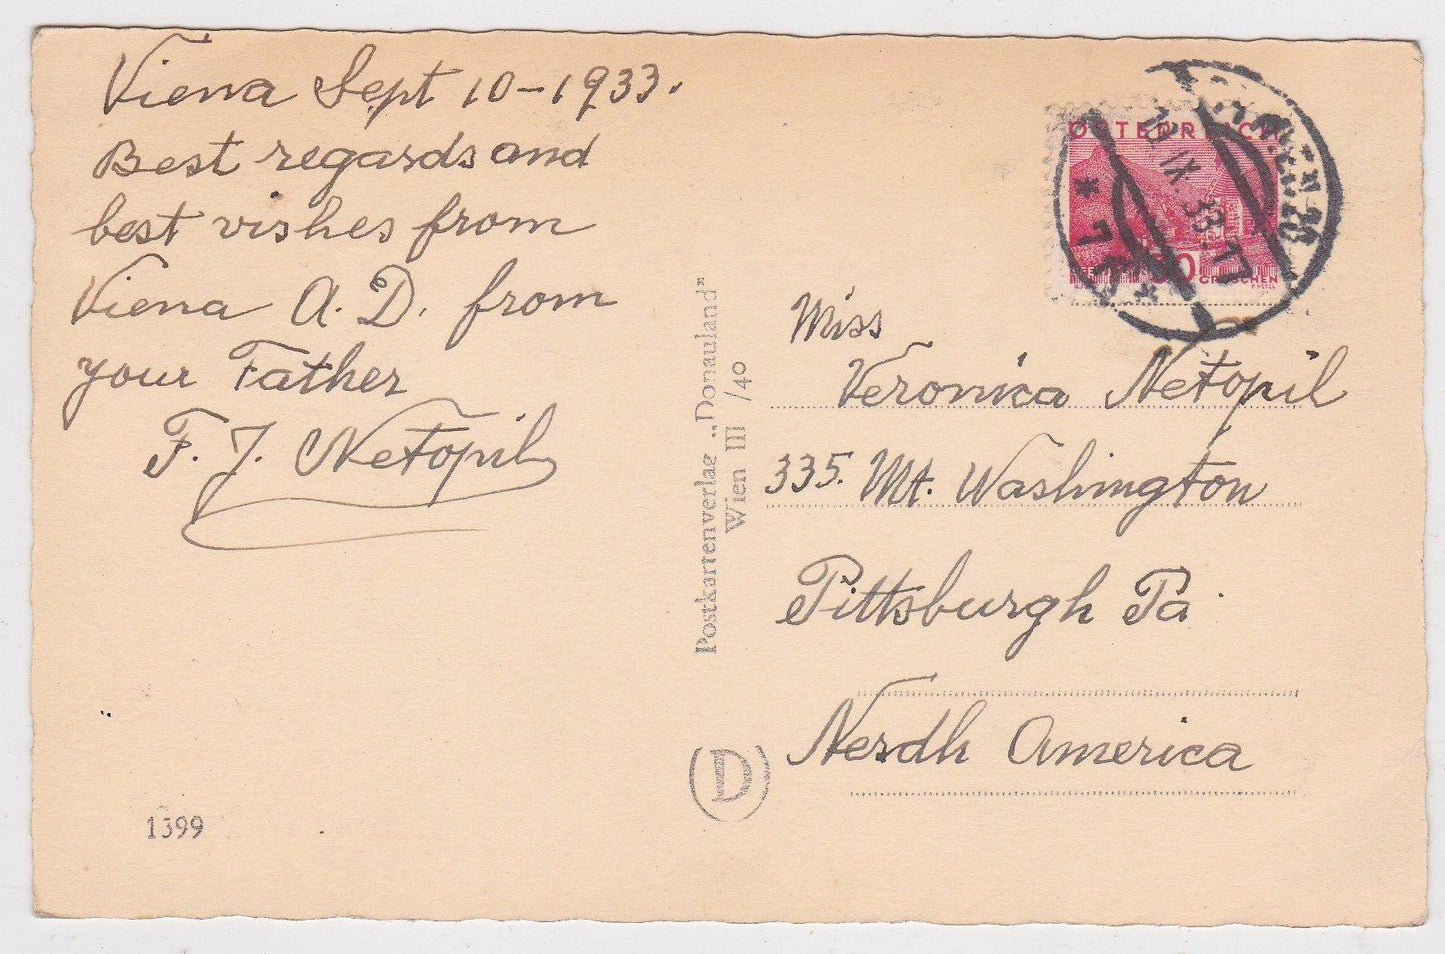 Viena Sept 10-1933.
Best regards and
best vishes from
Viena A. D. from
your Father
F. J. Netopil
1399
Postkartenverlag „Donauland"
Wien III /40
D
ÖSTERREICH
GROSCHEN
WIEN
IX.33.17
* 7
*
Miss
Veronica Netopil
335. Mt. Washington
Pittsburgh Pa.
Nerdh America